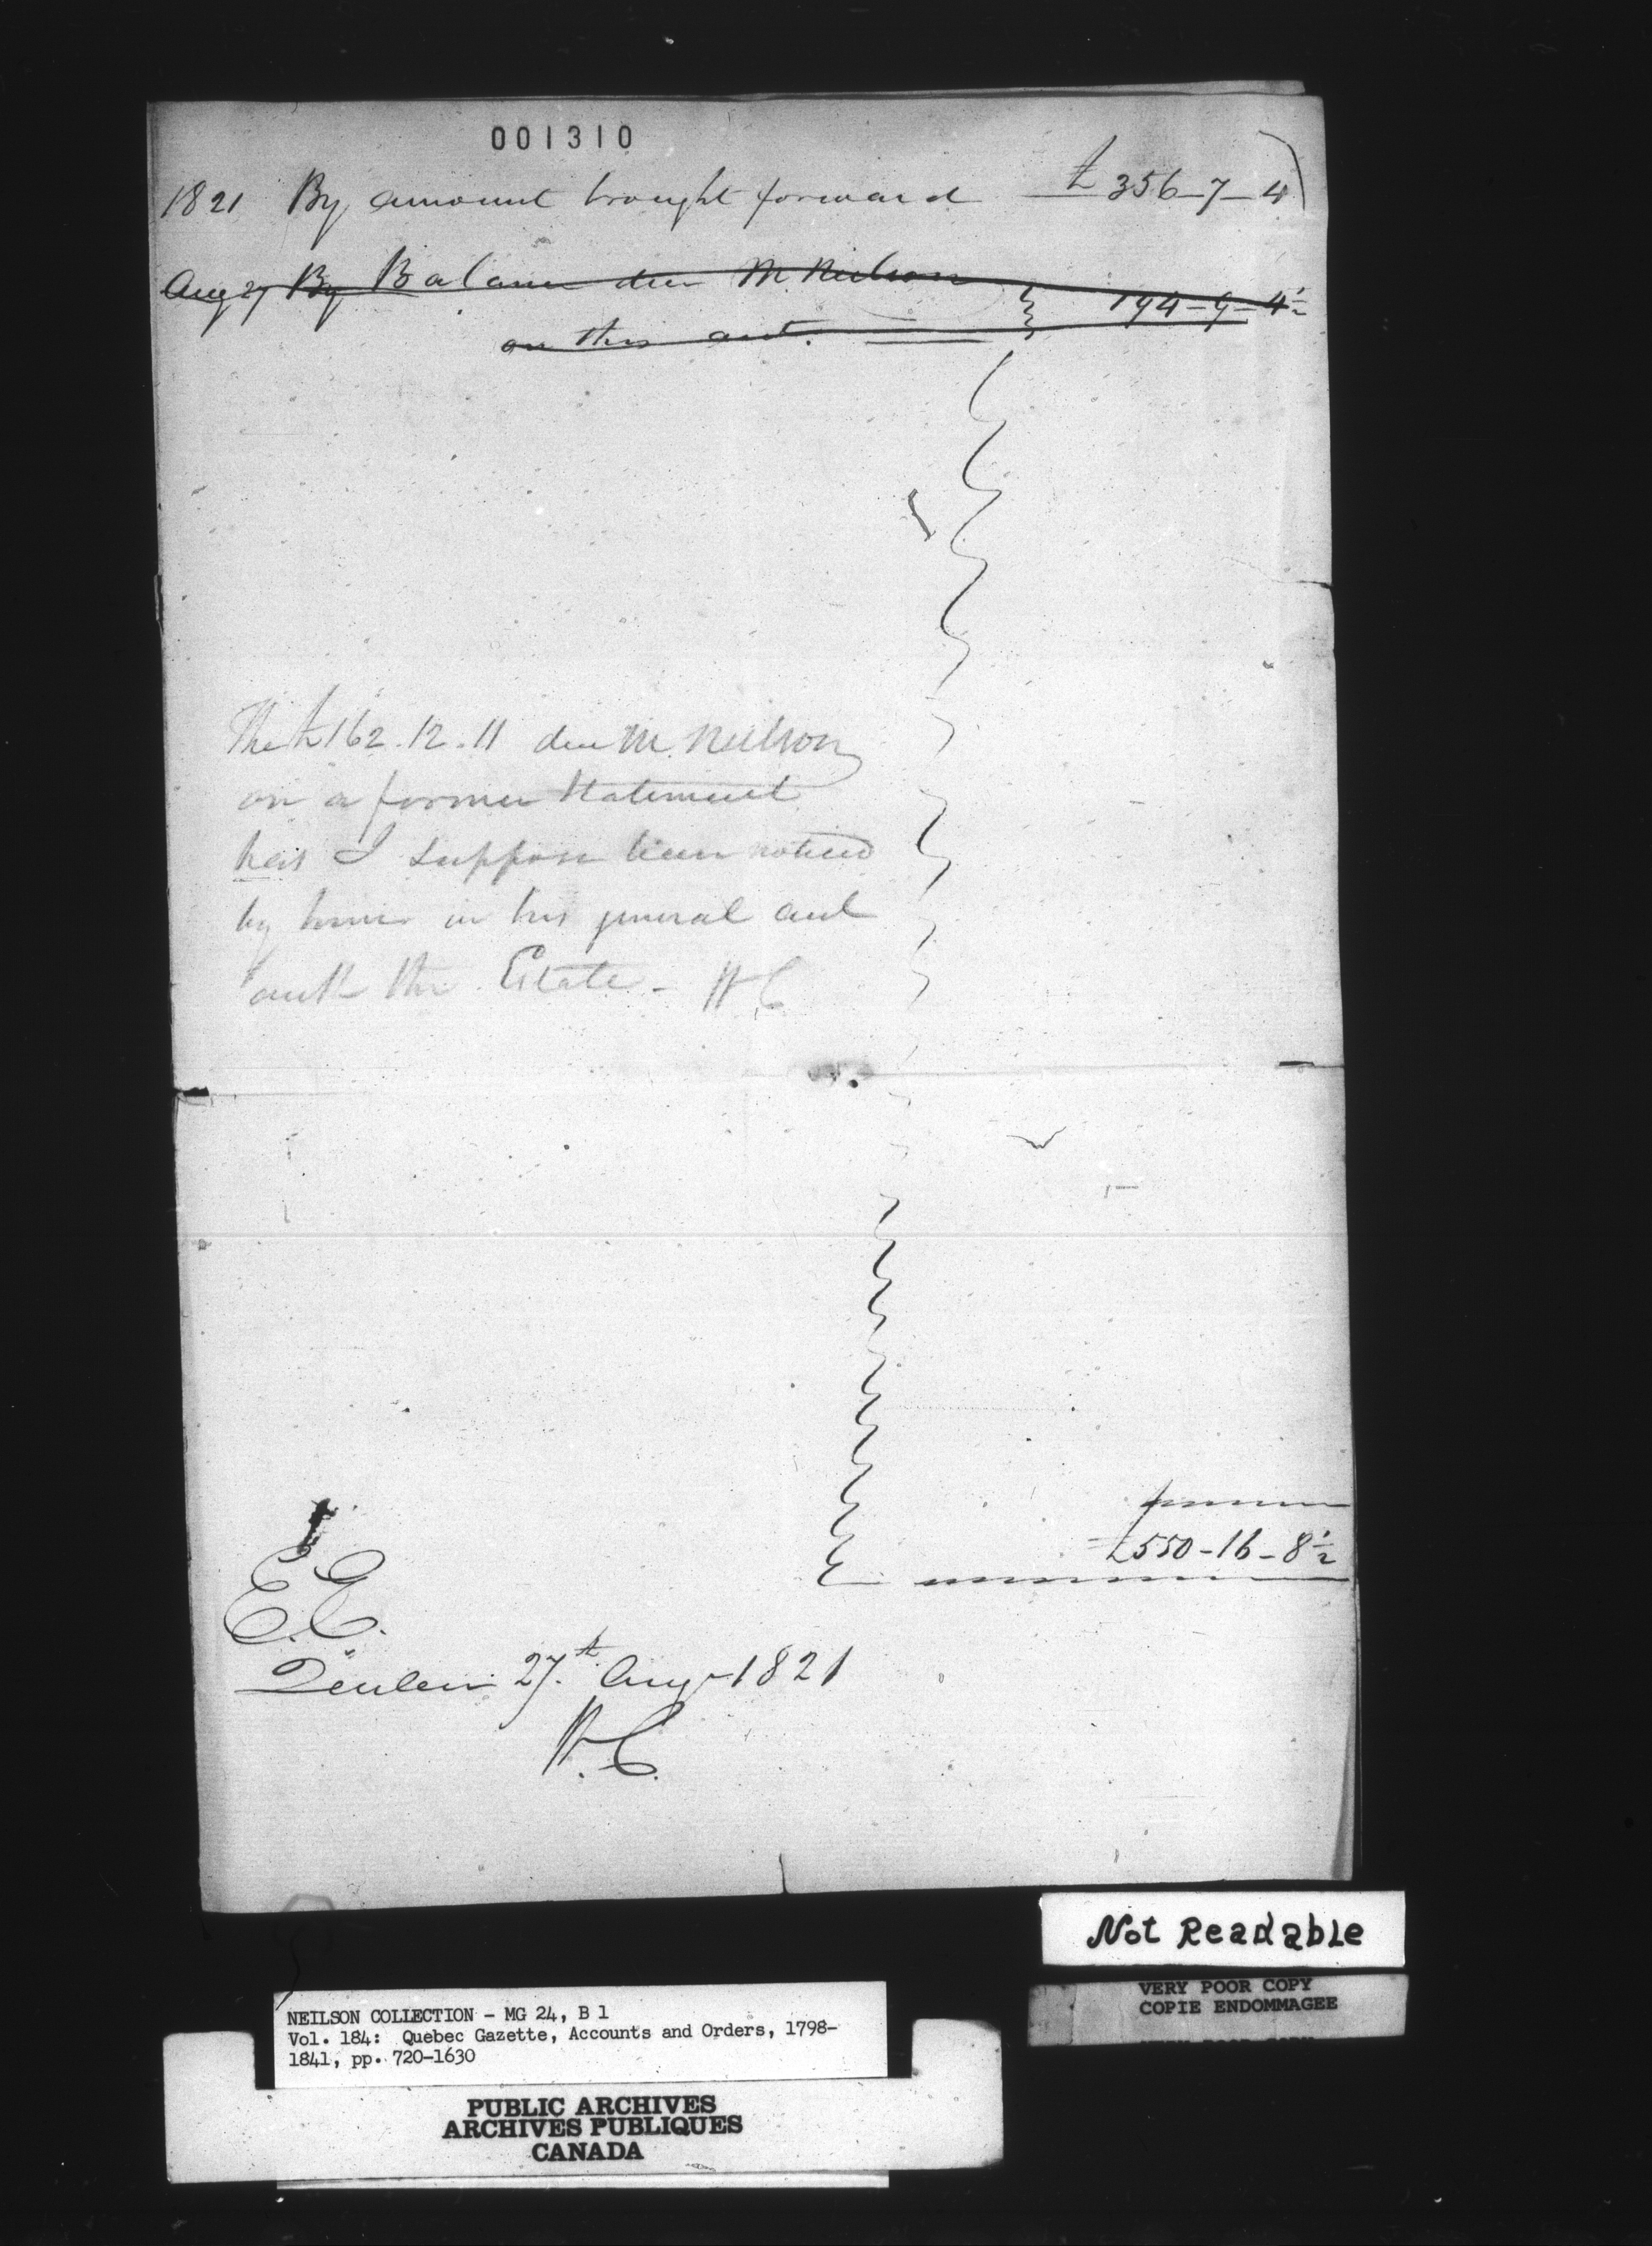 001310
1821 By amount brought forward £356-7-4
Aug 27 By Balance due M. Neilson
on this acct. 194-9-4½
The £162.12.11 due M. Neilson
on a former Statement
has I suppose been noticed
by him in his general acct
with the Estate - H C
E.E.
£550-16-8½
Quebec 27th Aug 1821
H.C.
Not Readable
VERY POOR COPY
COPIE ENDOMMAGEE
NEILSON COLLECTION - MG 24, B 1
Vol. 184: Quebec Gazette, Accounts and Orders, 1798-
1841, pp. 720-1630
PUBLIC ARCHIVES
ARCHIVES PUBLIQUES
CANADA